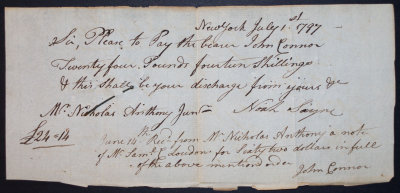 New York July 1st 1797
Sir, Please to Pay the bearer John Connor
Twenty four Pounds fourteen Shillings
& this shall be your discharge from yours &c
Mr. Nicholas Anthony Junr Noah Sayre
£24-14
June 14th Recd from Mr Nicholas Anthony a note
of Mr Saml. C Loudon for Sixty two dollars in full
of the above mention'd order
John Connor